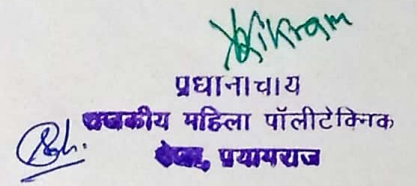 Vikram
प्रधानाचाय
राजकीय महिला पॉलीटेक्निक
प्रयागराज